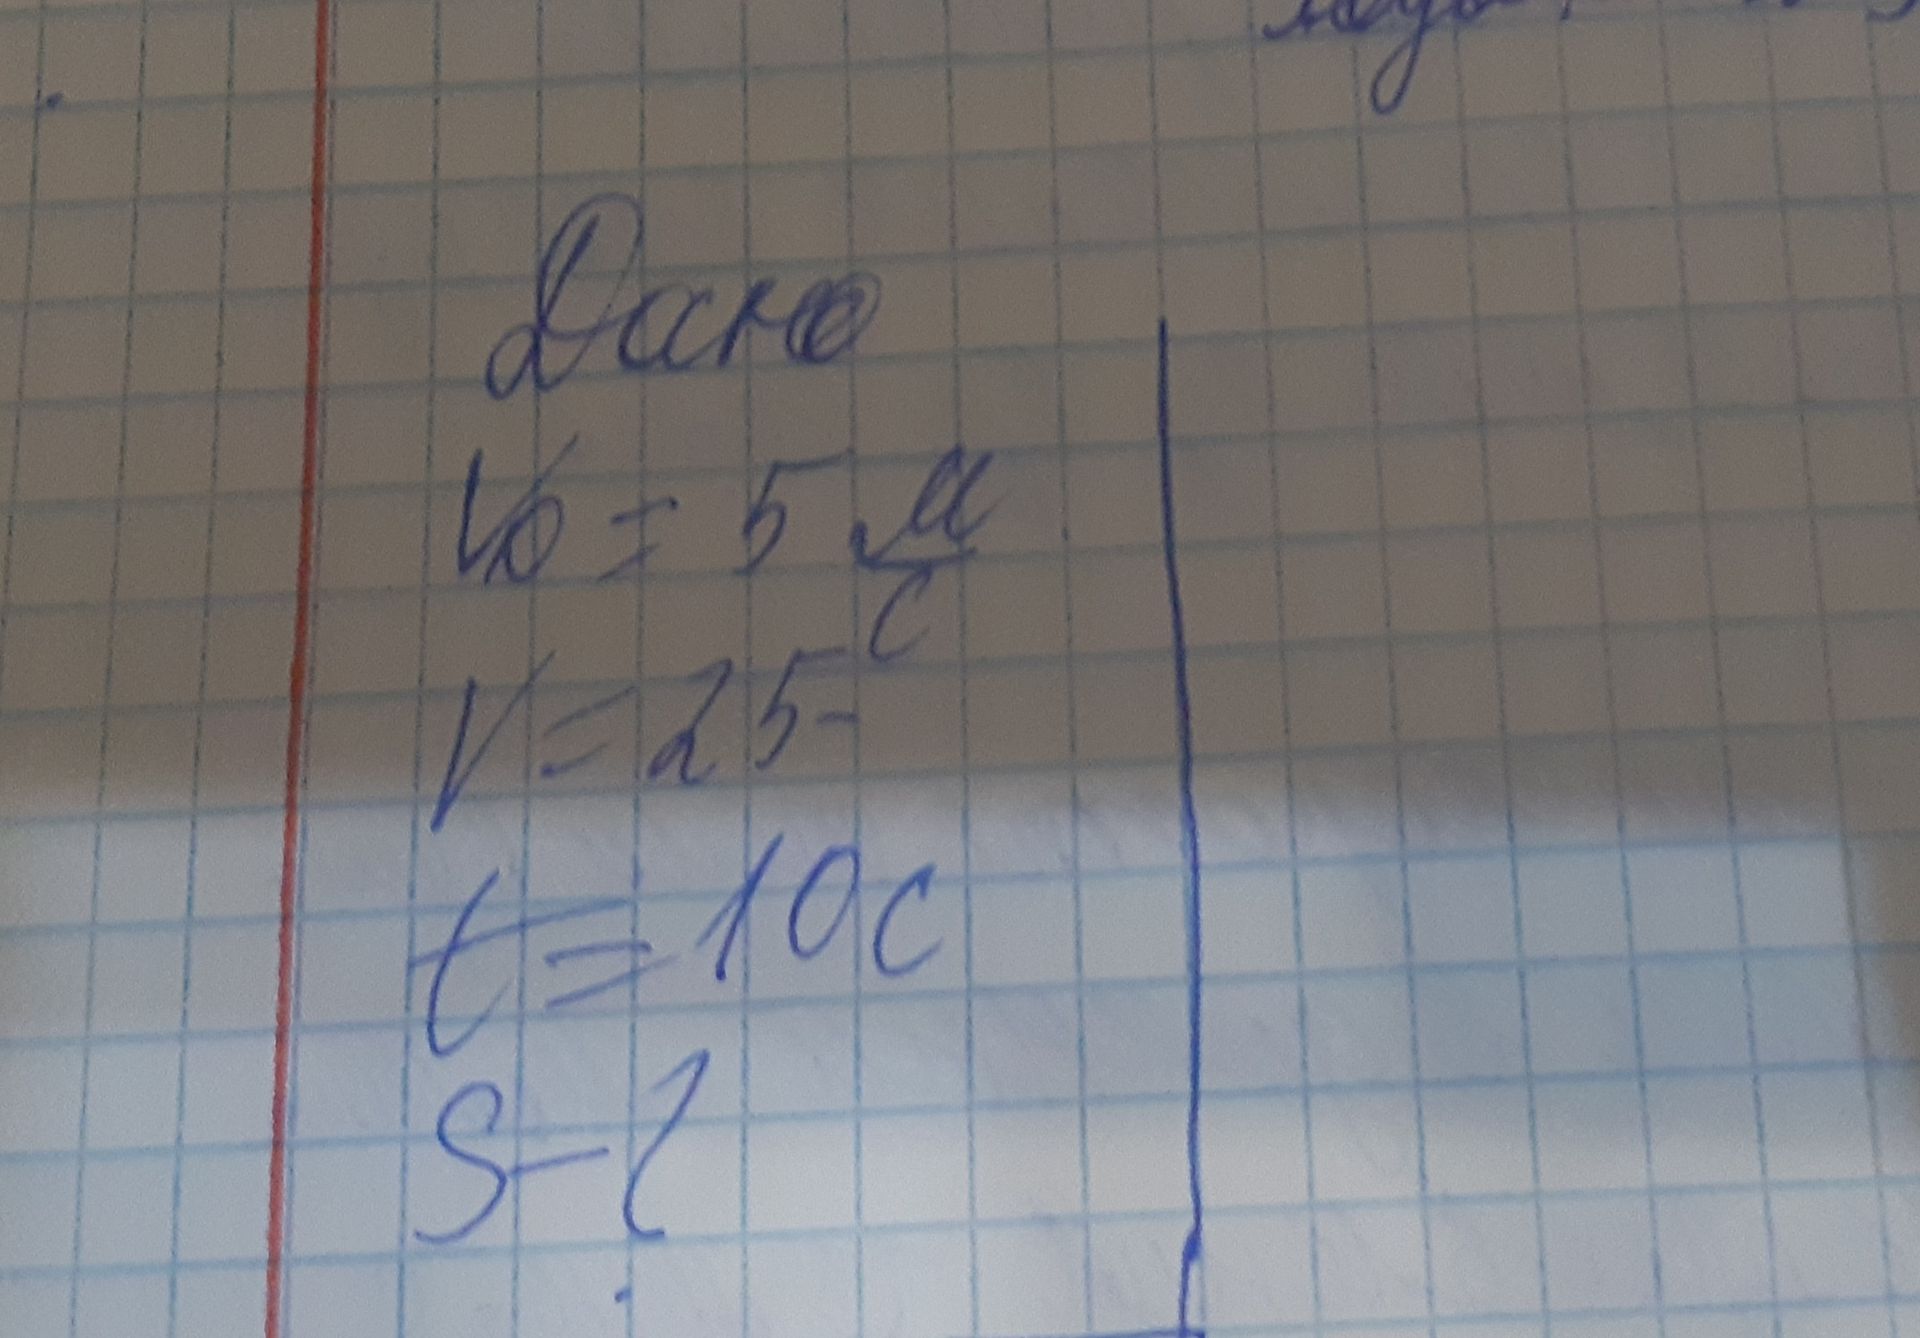 Дано
V₀ = 5 м/с
V = 25-
t = 10 с
S - ?